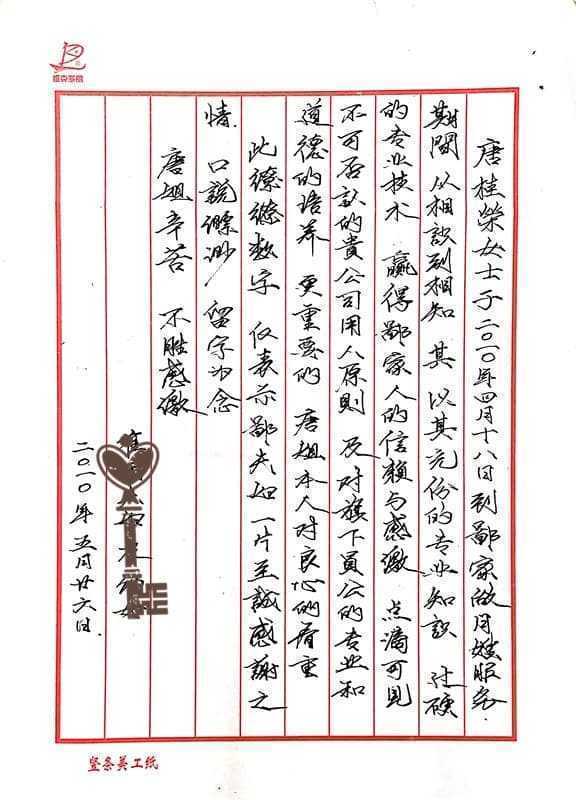 唐桂榮女士于二〇一〇年四月十八日到鄙家做月嫂服务.
期間 从相識到相知 其 以其充份的专业知識 过硬
的专业技术 赢得鄙家人的信賴与感激 点滴可見
不可否認的貴公司用人原則 及对旗下員公的专业和
道德的培养 更重要的 唐姐本人对良心的看重
此缭缭数字 仅表示鄙夫妇一片至誠感謝之
情 口説縹渺 留字为念
唐姐辛苦 不胜感激
二〇一〇年五月廿六日.
竖条美工纸